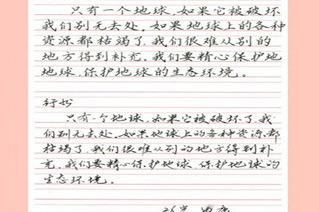 只有一个地球,如果它被破坏
我们别无去处。如果地球上的各种
资源都枯竭了,我们很难从别的
地方得到补充。我们要精心保护地
地球,保护地球的生态环境。
行书
只有一个地球,如果它被破坏了,我
们别无去处。如果地球上的各种资源都
枯竭了,我们很难从别的地方得到补
充。我们要精心保护地球,保护地球的
生态环境。